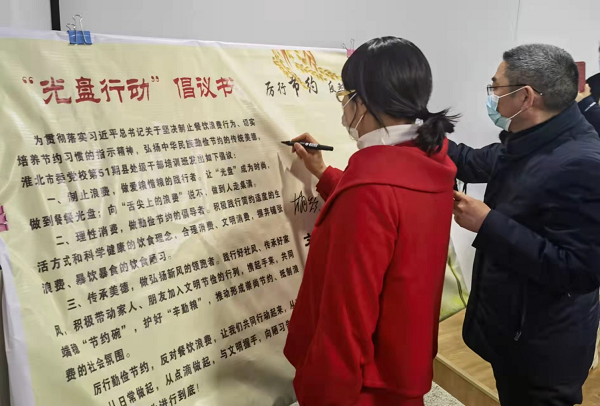 “光盘行动”倡议书
厉行节约 反
为贯彻落实习近平总书记关于坚决制止餐饮浪费行为、切实
培养节约习惯的指示精神，弘扬中华民族勤俭节约的传统美德，
淮北市委党校第51期县处级干部培训班发出如下倡议：
一、制止浪费，做爱粮惜粮的践行者。让“光盘”成为时尚，
做到餐餐光盘；向“舌尖上的浪费”说不，做到人走桌清。
二、理性消费，做勤俭节约的倡导者。积极践行简约适度的生
活方式和科学健康的饮食理念，合理消费、文明消费，摒弃铺张
浪费、暴饮暴食的饮食陋习。
三、传承美德，做弘扬新风的领跑者。践行好社风、传承好家
风，积极带动家人、朋友加入文明节俭的行列，携起手来，共同
端稳“节约碗”，护好“丰勤粮”，推动形成崇尚节约、抵制浪
费的社会氛围。
厉行勤俭节约，反对餐饮浪费，让我们共同行动起来，从
从日常做起，从点滴做起，与文明握手，向陋习
进行到底！